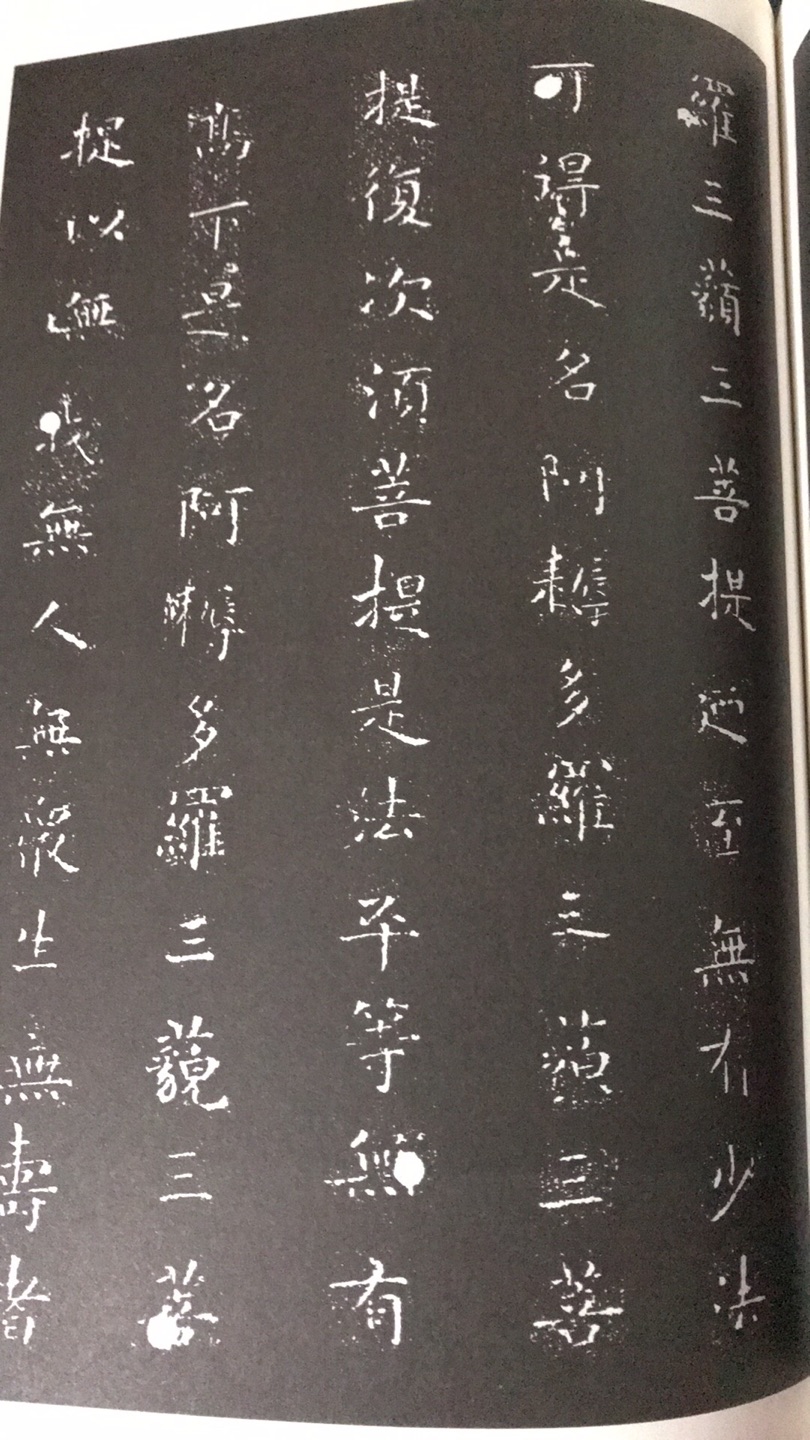 羅三藐三菩提迺至無有少法
可得是名阿耨多羅三藐三菩
提復次須菩提是法平等無有
高下是名阿耨多羅三藐三菩
提以無我無人無衆生無壽者